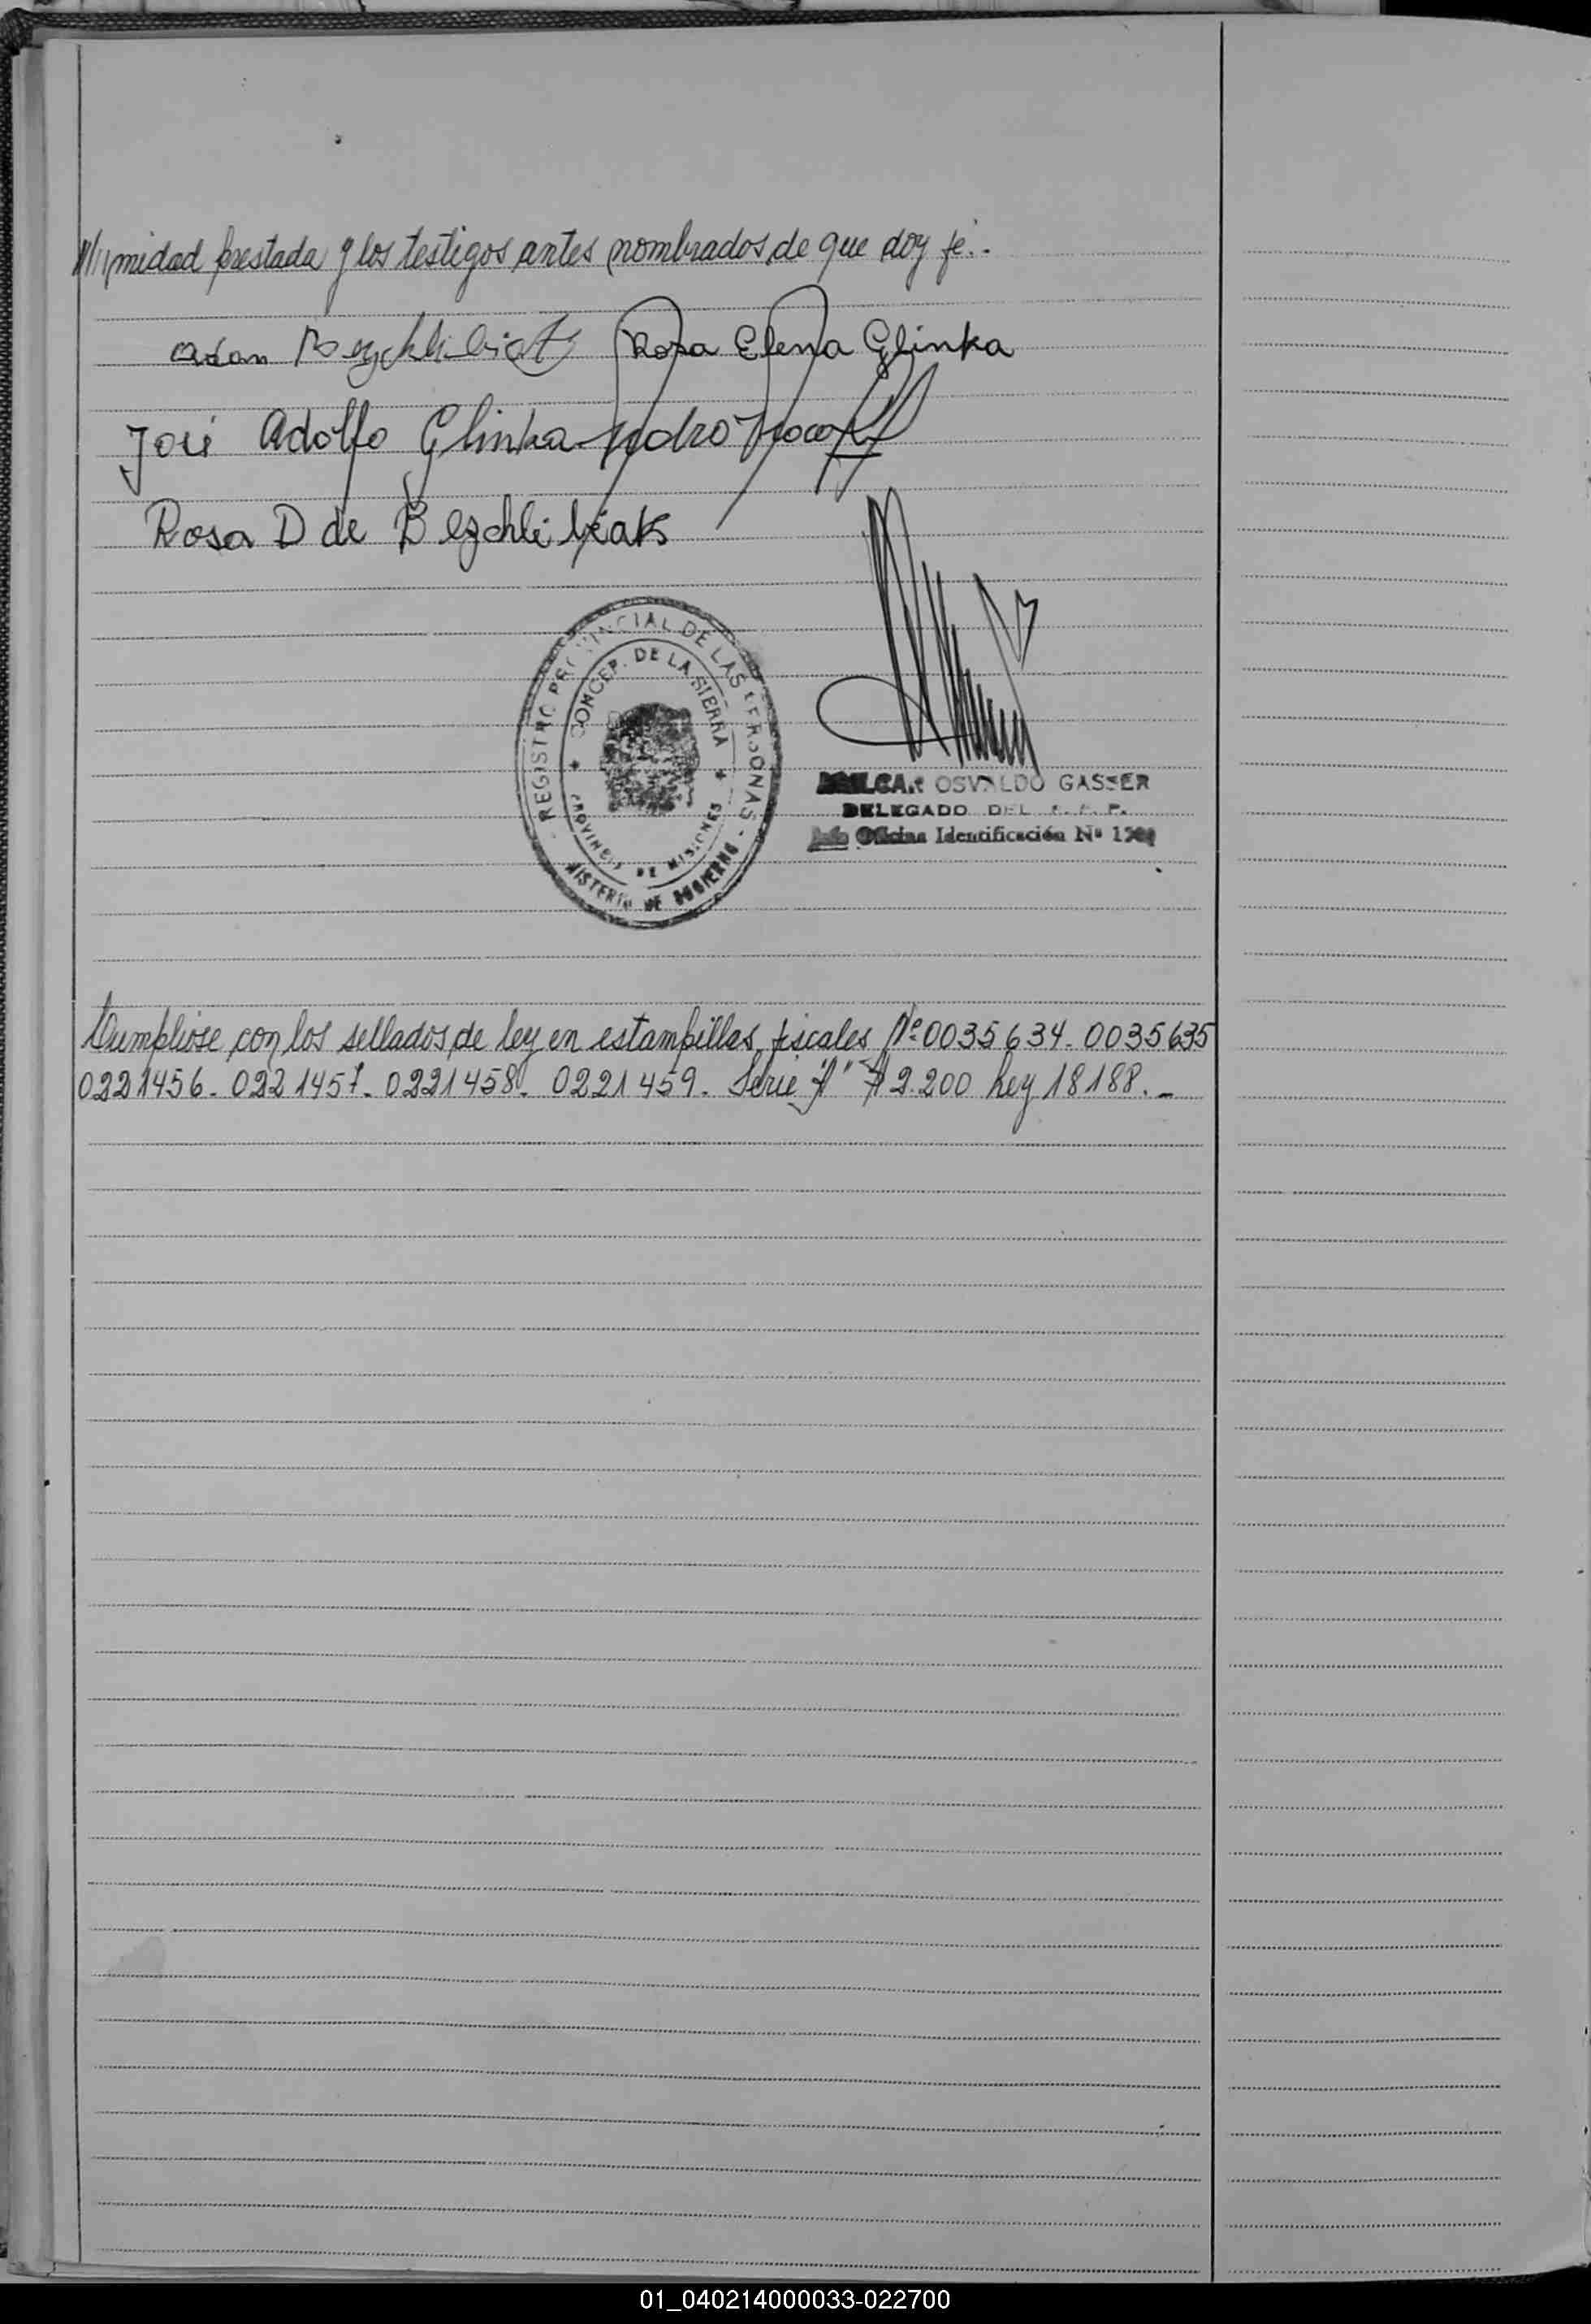 ////midad prestada y los testigos antes nombrados, de que doy fé.-
Adan Bezchlibiak Rosa Elena Glinka
José Adolfo Glinka Pedro
Rosa D de Bezchlibiak
REGISTRO PROVINCIAL DE LAS PERSONAS
CONCEP. DE LA SIERRA
PROVINCIA DE MISIONES
MINISTERIO DE GOBIERNO
AMILCAR OSVALDO GASSER
DELEGADO DEL R. P. P.
Oficina Identificación Nº
Cumpliose con los sellados de ley en estampillas fiscales Nº 0035634-0035635
0221456-0221457-0221458-0221459- Serie "A" $ 2.200 Ley 18188.-
01_040214000033-022700